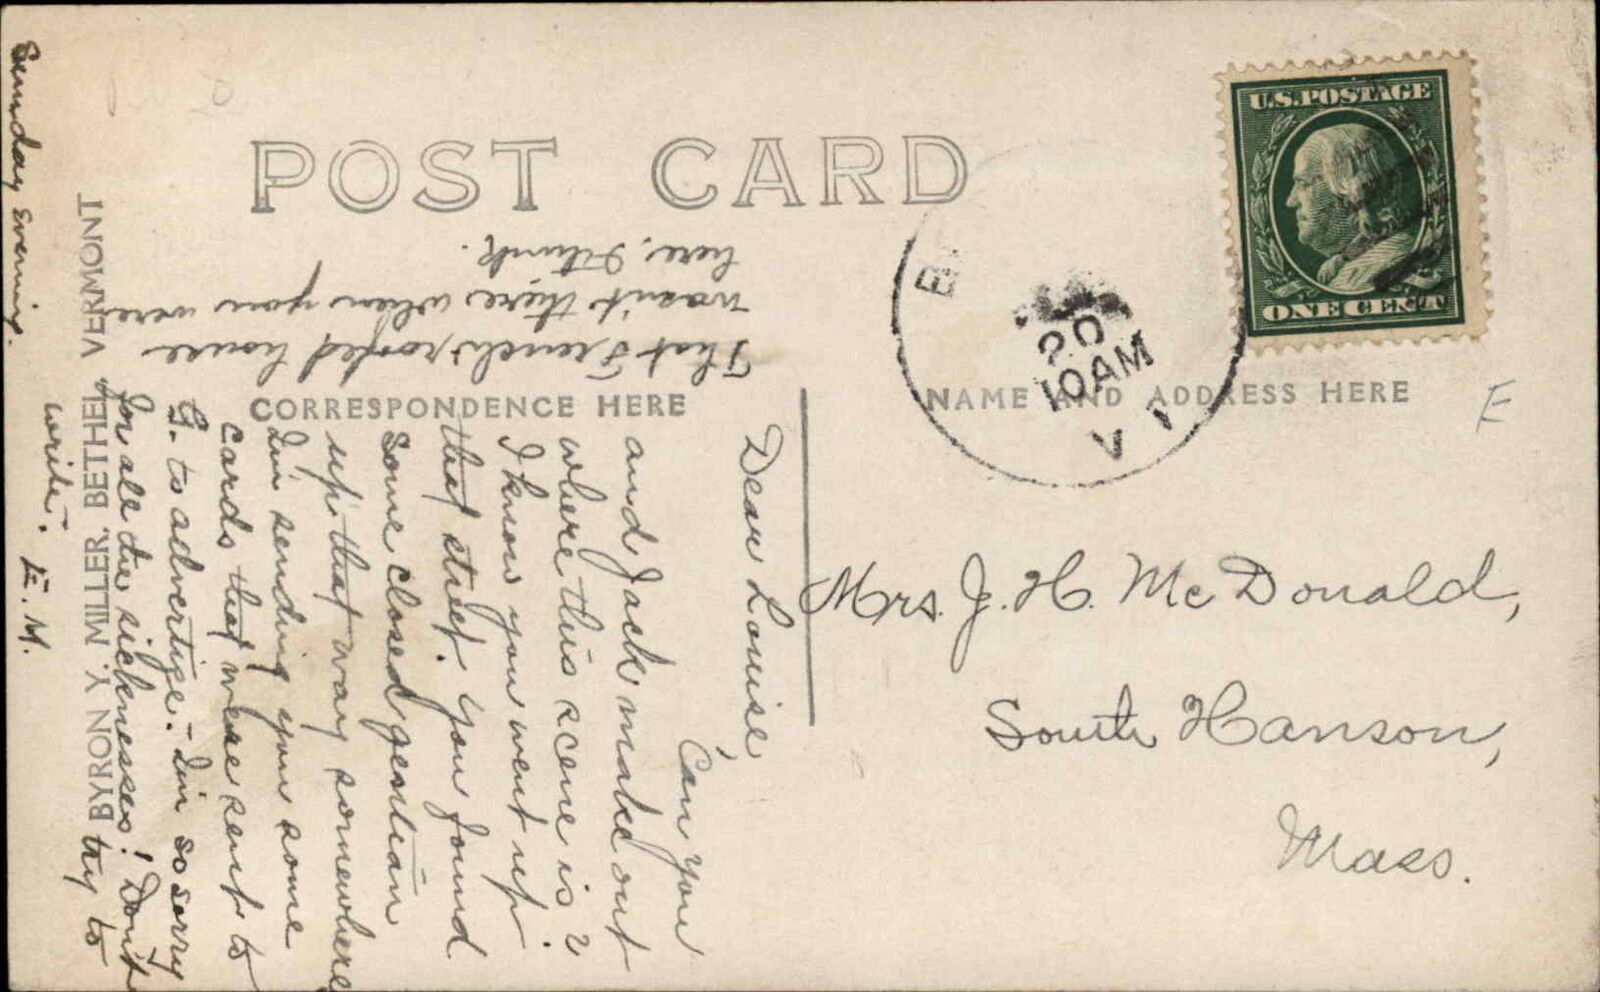 POST CARD
CORRESPONDENCE HERE
NAME AND ADDRESS HERE
U.S. POSTAGE
ONE CENT
20
10 AM
E
Mrs. J. H. McDonald,
South Hanson,
Mass.
Sunday Evening.
Dear Louise,
Can you
and Jack make out
where this scene is?
I know you went up
that street. You found
some closed gentian
up that way somewhere
I'm sending you some
cards that were sent to
G. to advertize. - I'm so sorry
for all the sicknesses! Don't
try to
write. E. M.
That French roofed house
wasn't there when you were
here, I think.
BYRON Y. MILLER. BETHEL, VERMONT